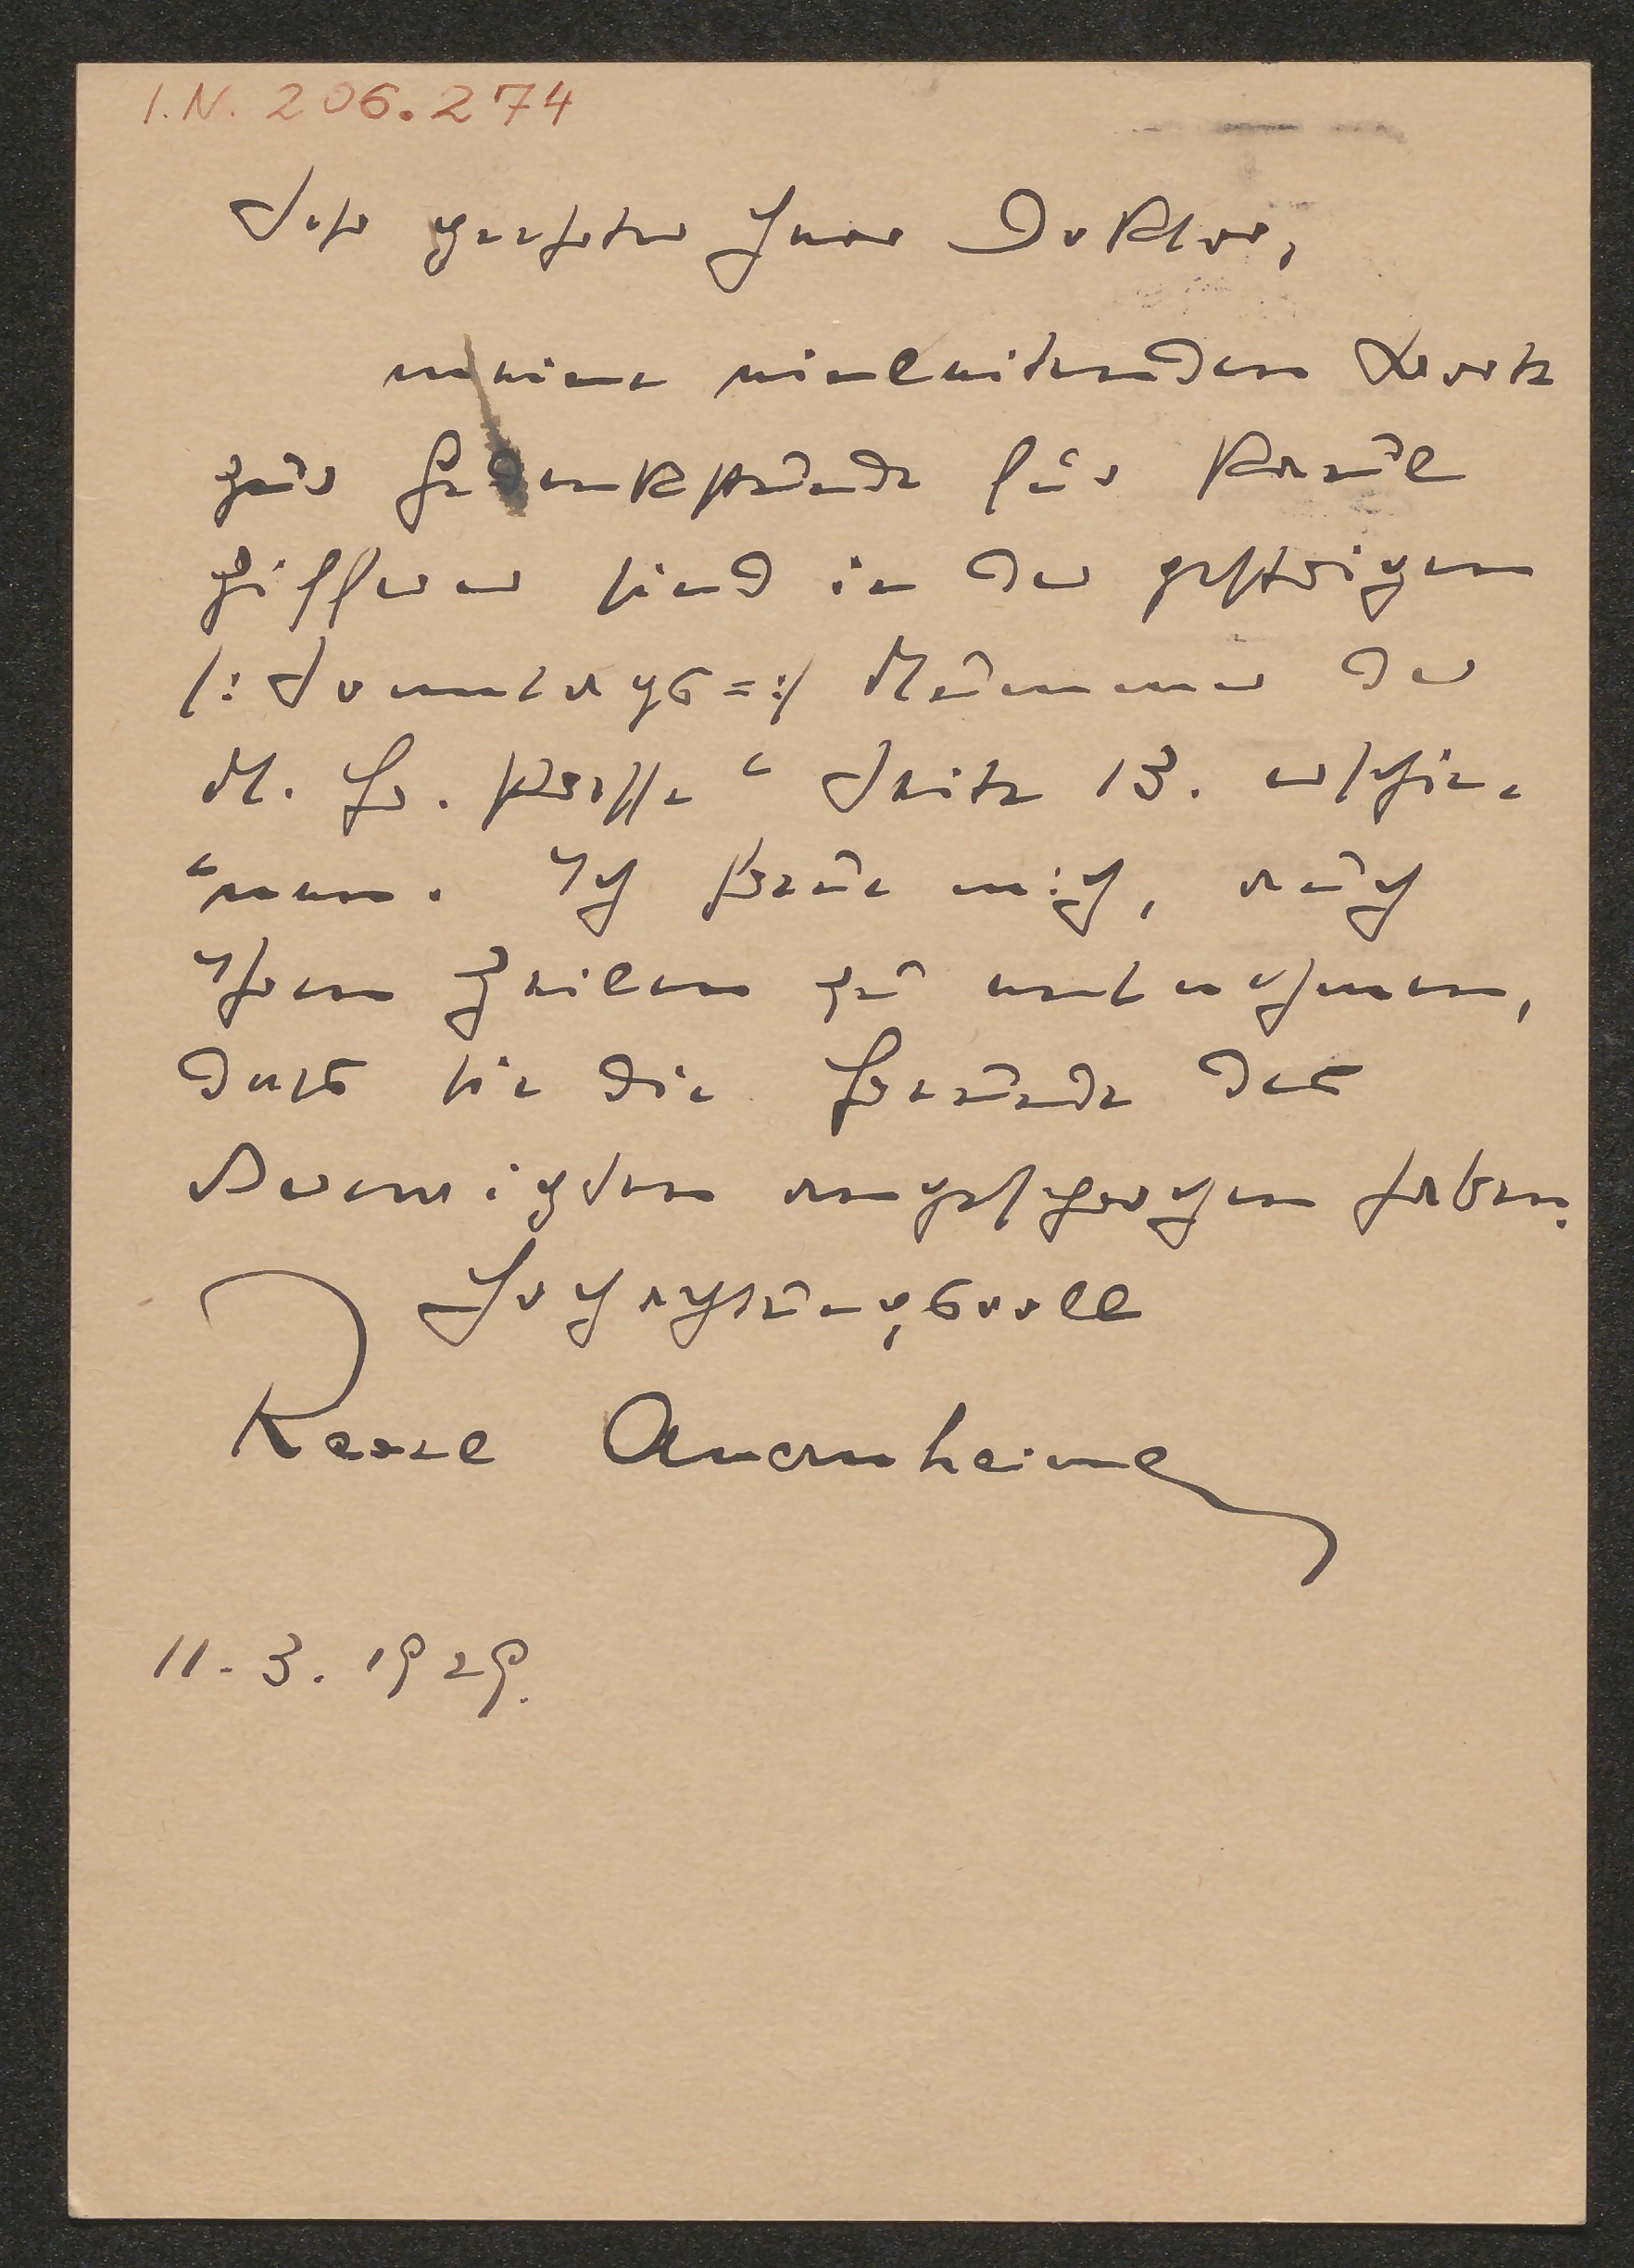 I.N. 206.274
Sehr geehrter Herr Doktor,
meine einleitenden Worte
zur Gedenkstunde für Paul
Zifferer sind in der gestrigen
/: Sonntags=:/ Nummer der
N. Fr. Presse" Seite 13. erschie-
"nen. Ich freue mich, auch
Ihren Zeilen zu entnehmen,
dass sie die Freunde des
Verewigten angesprochen haben.
Hochachtungsvoll
Raoul Auernheimer
11. 3. 1929.